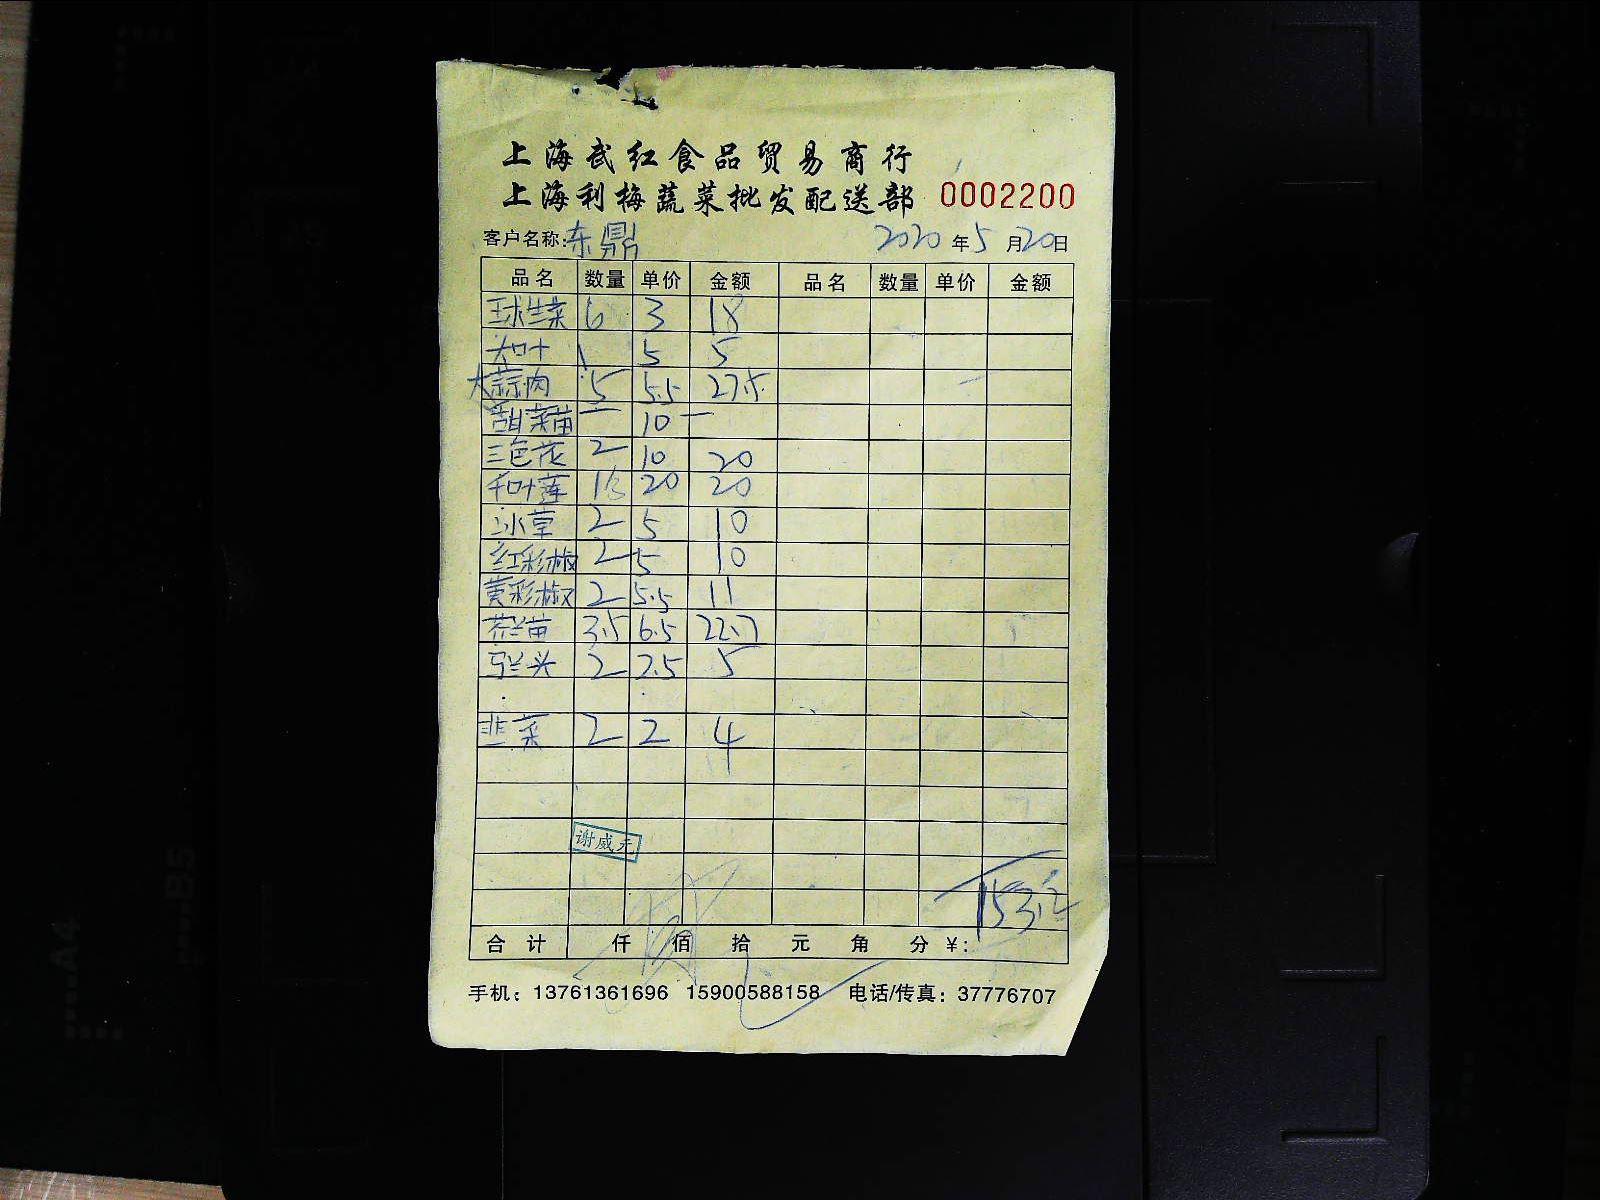 上海武红食品贸易商行
上海利梅蔬菜批发配送部 0002200
客户名称:东鼎 2020年5月20日
品名 数量 单价 金额 品名 数量 单价 金额
球生菜 6 3 18
大叶 1 5 5
大蒜肉 5 5.5 27.5
甜菜苗 一 10 一
三色花 2 10 20
千叶莲 1 20 20
冰草 2 5 10
红彩椒 2 5 10
黄彩椒 2 5.5 11
芥兰苗 3.5 6.5 22.7
马兰头 2 2.5 5
韭菜 2 2 4
谢威元
153.2
合计 仟 佰 拾 元 角 分 ¥:
手机: 13761361696 15900588158 电话/传真: 37776707
A4
B5